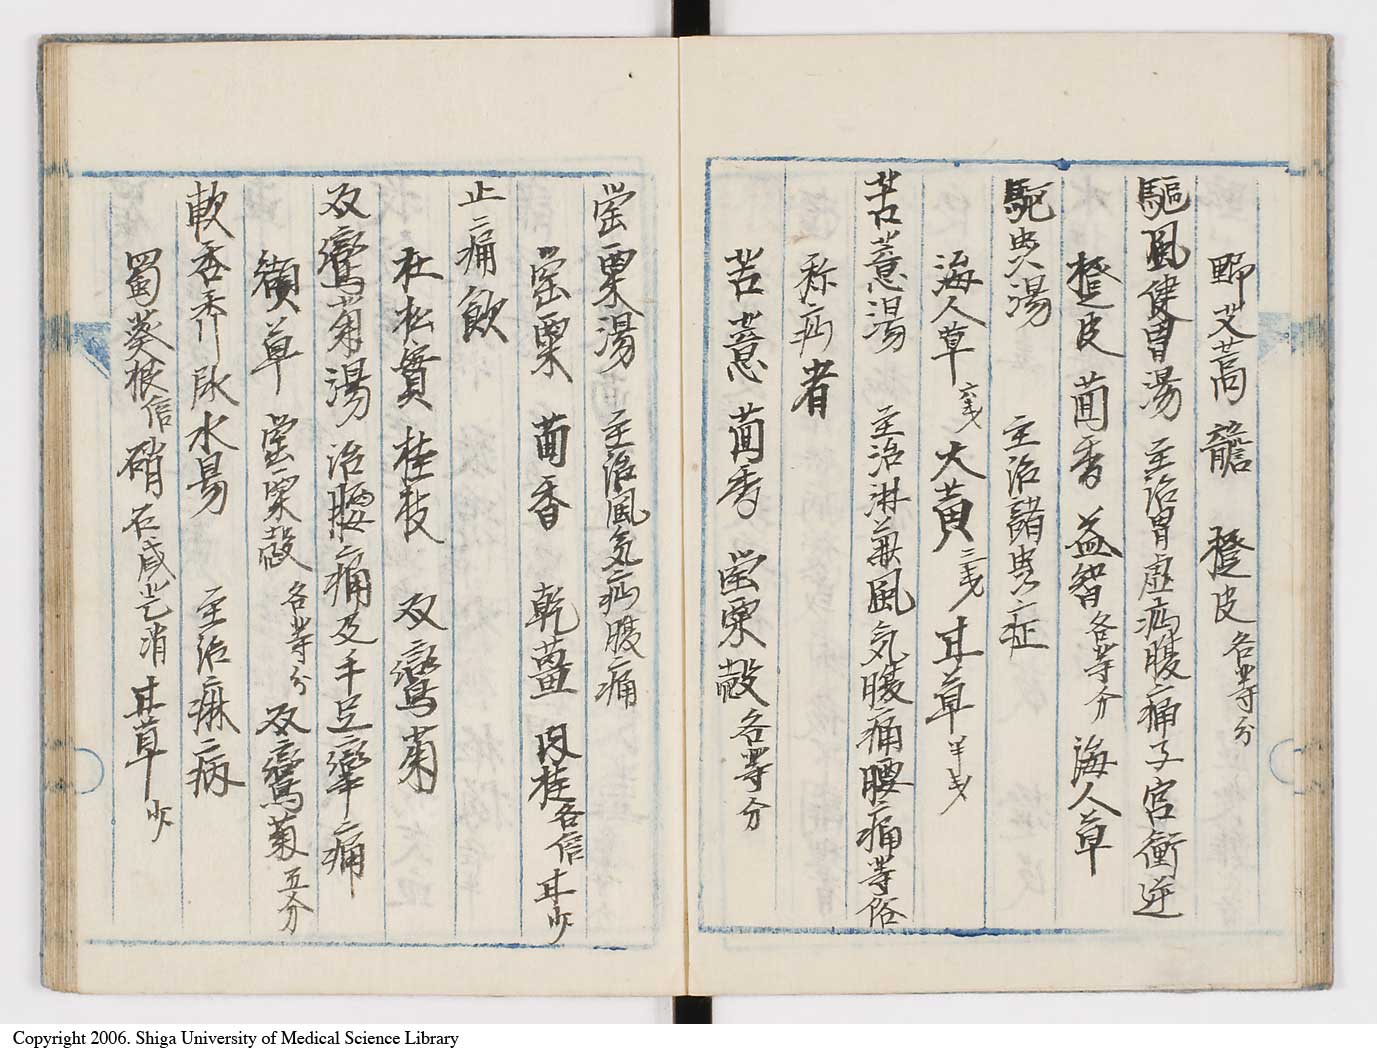 野艾蒿 𦼮 橙皮各等分
駆風健胃湯 主治胃虚疝腹痛子宮衝逆
橙皮 茴香 益智各等分 海人草
駆虫湯 主治諸虫症
海人草六戔 大黄三戔 甘草半戔
苦薏湯 主治淋兼風気腹痛腰痛等俗
称疝者
苦薏 茴香 罌粟殻各等分
罌粟湯 主治風気疝腹痛
罌粟 茴香 乾薑 肉桂各信 甘少
止痛飲
杜松實 桂枝 双鸞菊
双鸞菊湯 治腰痛及手足攣痛
纈草 罌粟殻各等分 双鸞菊五分
軟 水湯 主治痳病
蜀葵根信 硝石咸芒消 甘草少
Copyright 2006. Shiga University of Medical Science Library